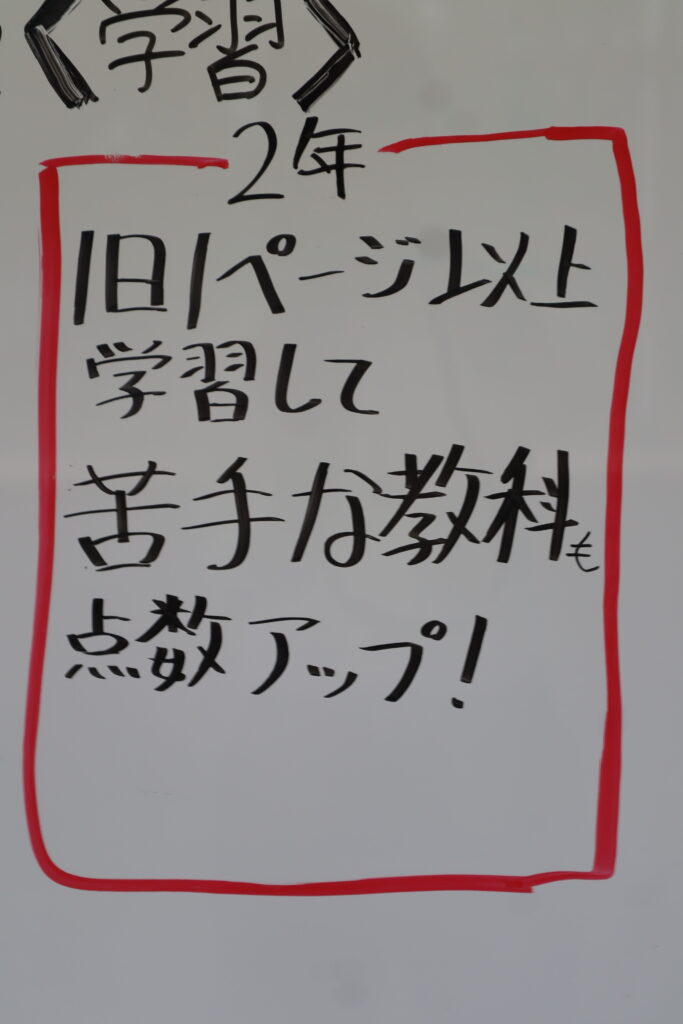 〈学習〉
2年
1日1ページ以上
学習して
苦手な教科も
点数アップ!